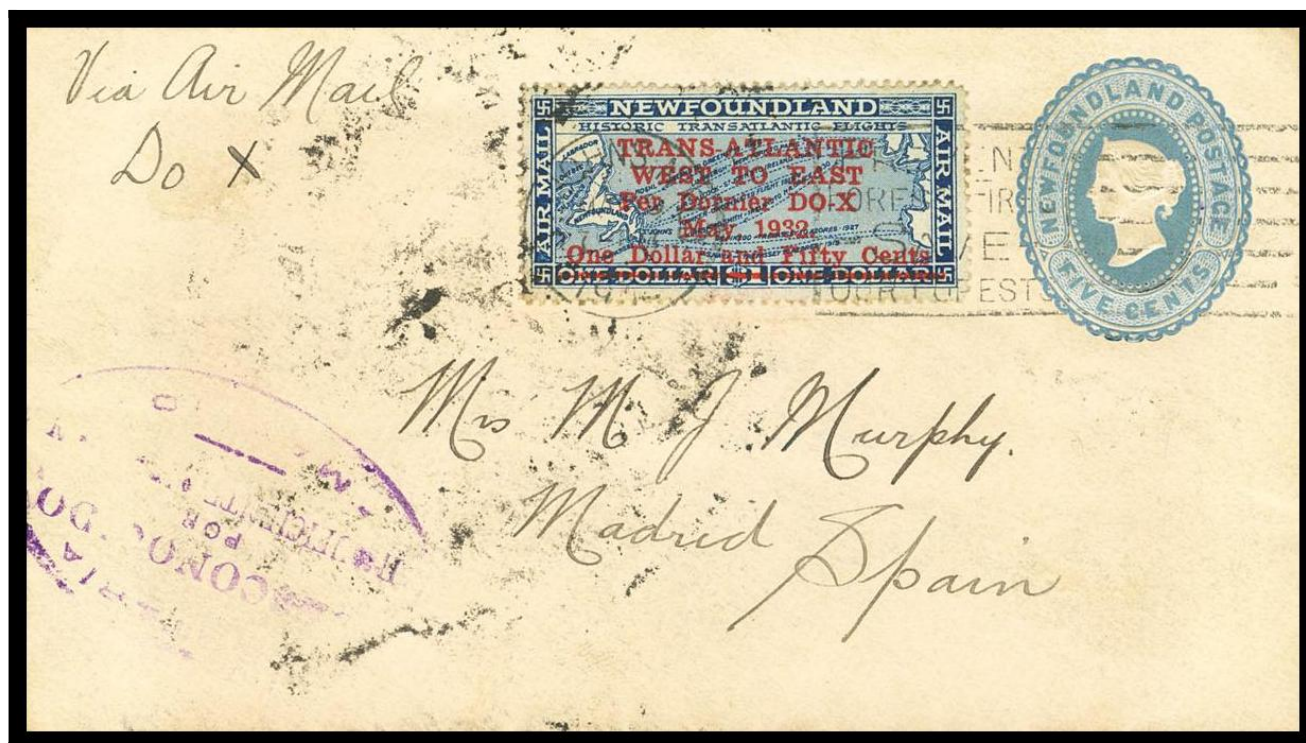 Via Air Mail
Do X
NEWFOUNDLAND
HISTORIC TRANSATLANTIC FLIGHTS
AIR MAIL
AIR MAIL
LABRADOR
NEWFOUNDLAND
TRANS-ATLANTIC
WEST TO EAST
Per Dornier DO-X
May 1932.
One Dollar and Fifty Cents
ONE DOLLAR $1 ONE DOLLAR
NEWFOUNDLAND POSTAGE
FIVE CENTS
YOUR FORESTS
Mrs M J Murphy.
Madrid
Spain
POR